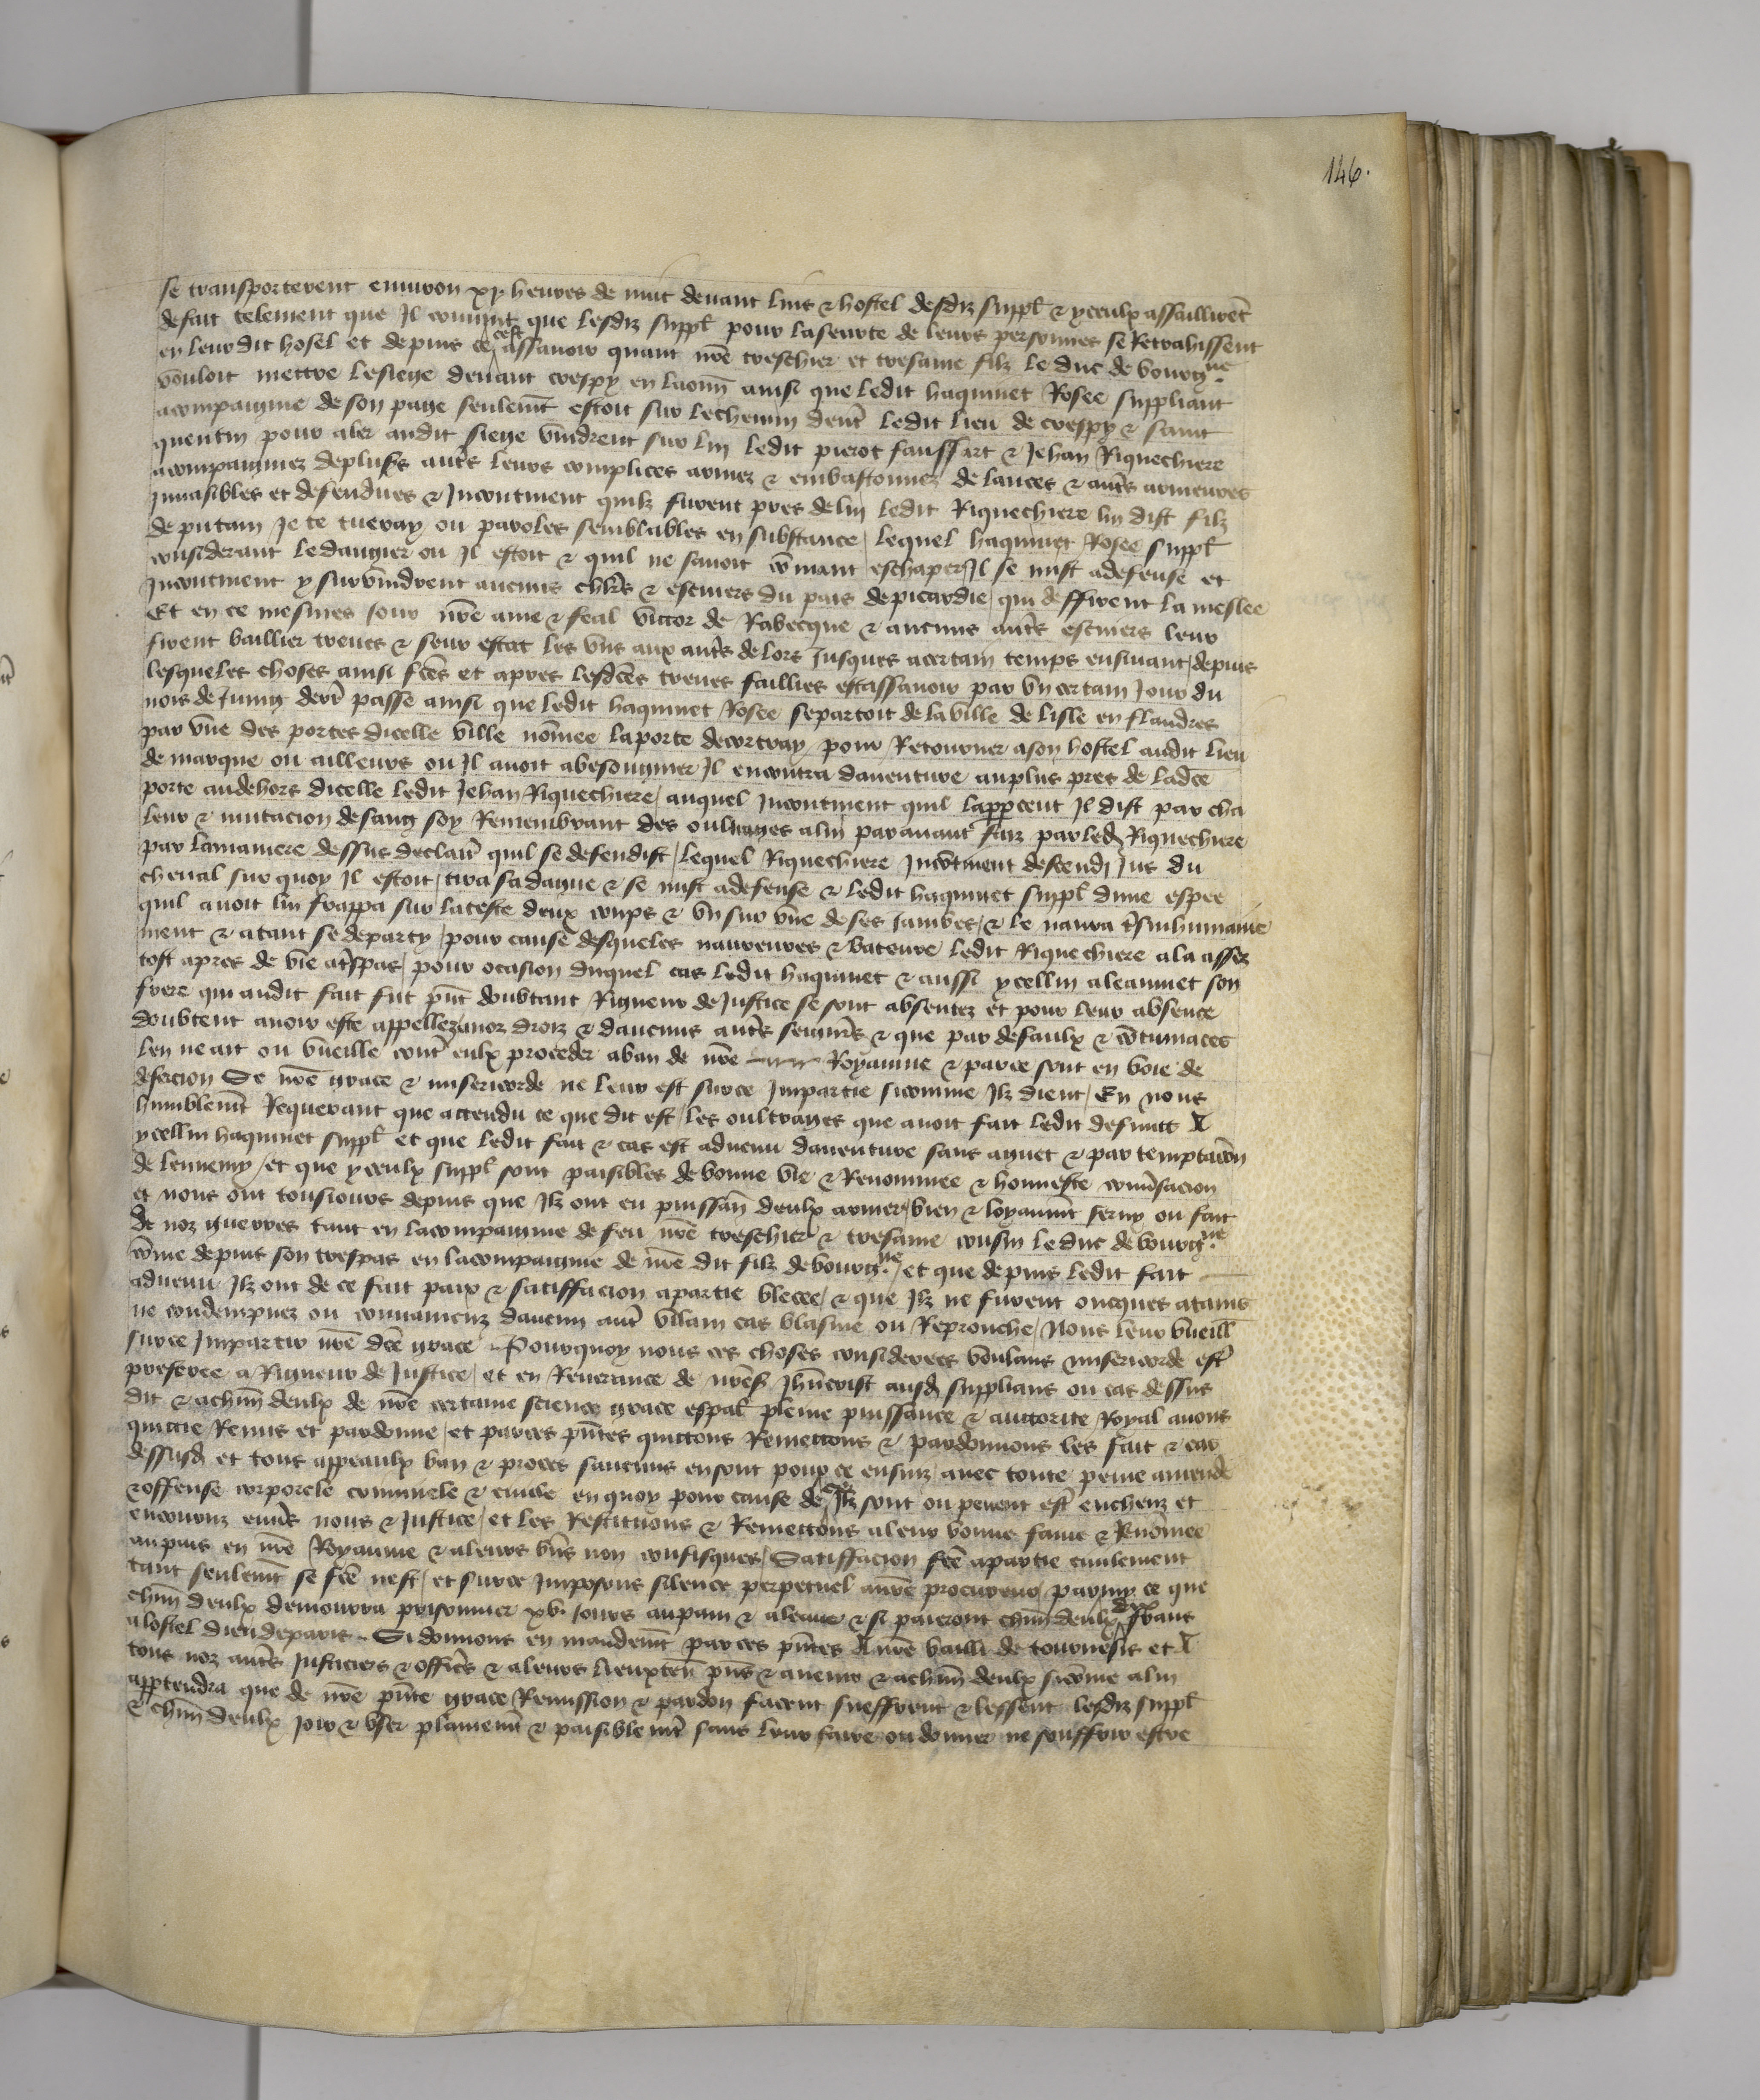 146.
se transporterent environ xj heures de nuit devant luis & hostel desdiz suppl̃ & yceulx assaillirẽt
de fait telement que Il convint que lesdiz suppl̃ pour la seurte de leurs personnes se Retrahissent
en leur dit hosel et depuis ce cest assavoir quant nr̃e treschier et tresame filz le duc de bourgne
vouloit mettre le siege devant crespy en laonn̄ ainsi que ledit haquinet Rosee suppliant
acompaignie de son page seulemt̃ estoit sur le chemin dent̃ ledit lieu de crespy & saint
quentin pour aler audit siege vindrent sur lui ledit pierot faussart & Jehan Riquechiere
acompaignez de pluss̃ autr̃s leurs complices armez & embastonnez de lances & autr̃s armeures
Invasibles et defendues & Incontinent quilz furent pres de lui ledit Riquechiere lui dist filz
de putain Je te tueray ou paroles semblables en substance / lequel haquinet Rosee suppl̃
considerant le dangier ou Il estoit & quil ne savoit cõmant eschaper Il se mist a defense et
Incontinent y survindrent aucuns chlr̃s & escuiers du pais de picardie / qui deffirent la meslee
Et en ce mesmes Jour nr̃e ame & feal victor de Rabecque & aucuns autr̃s escuiers leur
firent baillier treves & seur estat les vns aux autr̃s de lors Jusques a certain temps ensuivant / depuis
lesqueles choses ainsi fc̃es et apres lesdc̃es treves faillies est assavoir par vn certain Jour du
mois de Juing derr̃ passe ainsi que ledit haquinet Rosee se partoit de la ville de lisle en flandres
par vne des portes dicelle ville nõmee la porte de cortray pour Retourner a son hostel audit lieu
de marque ou ailleurs ou Il avoit a besongnier Il encontra daventure au plus pres de ladc̃e
porte au dehors dicelle ledit Jehan Riquechiere / auquel Incontinent quil lappercent Il dist par cha
leur & mutacion de sang soy Remembrant des oultrages a lui paravant faiz par led̃ Riquechiere
par la maniere dessus declair̃ quil se defendist / lequel Riquechiere Incõtinent descendi Jus du
cheval sur quoy Il estoit / tira sa dague & se mist a defense & ledit haquinet suppl̃ dune espee
quil avoit lui frappa sur la teste deux coups & vn sur vne de ses Jambes / & le navra tr̃sinhumaine
ment & atant se departy / pour cause desqueles navreures & bateure ledit Riquechiere ala assez
tost apres de vie a tr̃spas / pour ocasion duquel cas ledit haquinet & aussi ycellui aleaumet son
frere qui audit fait fut pñt doubtant Rigueur de Justice se sont absentez et pour leur absence
doubtent avoir este appellez a noz droiz & daucuns autr̃s seigñrs & que par defaulx & cõtumaces
len ne ait ou vueille contr̃ eulx proceder a ban de nr̃e Royaume & par ce sont en voie de
desercion Se nr̃e grace & misericorde ne leur est sur ce Impartie sicomme Ilz dient / En nous
humblemt̃ Requerant que attendu ce que dit est / les oultrages que avoit fait ledit defunct A
ycellui haquinet suppl̃ et que ledit fait & cas est advenu daventure sans aguet & par temptaciõn
de lennemy / et que yceulx suppl̃ sont paisibles de bonne vie & Renommee & honneste convr̃sacion
et nous ont tousiours depuis que Ilz ont eu puissanc̃ deulx armer bien & loyaumt̃ servy ou fait
de noz guerres tant en la compaignie de feu nr̃e treschier & tresame cousin le duc de bourgne
cõme depuis son trespas en la compaignie de nr̃e dit filz de bourgne / et que depuis ledit fait
advenu Ilz ont de ce fait paix & satiffacion a partie blecee / & que Ilz ne furent oncques atains
ne condempnez ou convaincuz daucun autr̃ villain cas blasme ou Reprouche / Nous leur vueill̃
sur ce Impartir nr̃e dc̃e grace Pourquoy nous ces choses considerees voulans misericorde estr̃
preferee a Rigueur de Justice / et en Reverance de nr̃eS Jhũcrist ausd̃ supplians ou cas dessus
dit & a chũn deulx de nr̃e certaine science grace espal̃ pleine puissance & auctorite Royal avons
quittie Remis et pardonne / et par ces pñtes quittons Remettons & pardonnons les fait & cas
dessusd̃ et tous appeaulx ban & proces saucuns en sont pour ce ensuiz avec toute peine amende
& offense corporele criminele & civile en quoy pour cause de ce Ilz sont ou pevent estr̃ encheuz et
encouruz envr̃s nous & Justice / et les Restituons & Remettons a leur bonne fame & Renõmee
au pais en nr̃e Royaume & a leurs bñs non confisques / Satiffacion fc̃e a partie civilement
tant seulemt̃ se fc̃e nest / et sur ce Imposons silence perpetuel a nr̃e procureur / parmy ce que
chũn deulx demourra prisonnier xv. Jours au pain & a leaue & si paieront chũn deulx dix frans
a lostel dieu de paris Si donnons en mandemt̃ par ces pñtes A nr̃e bailli de tournesis et A
tous noz autr̃s Justiciers & officr̃s & a leurs lieuxten̄ pñs & avenir & a chũn deulx sicõme a lui
appartendra que de nr̃e pñte grace Remission & pardon facent sueffrent & lessent lesdiz suppl̃
& chũn deulx Joir & vser plainemt̃ & paisiblemt̃ sans leur faire ou donner ne souffrir estre